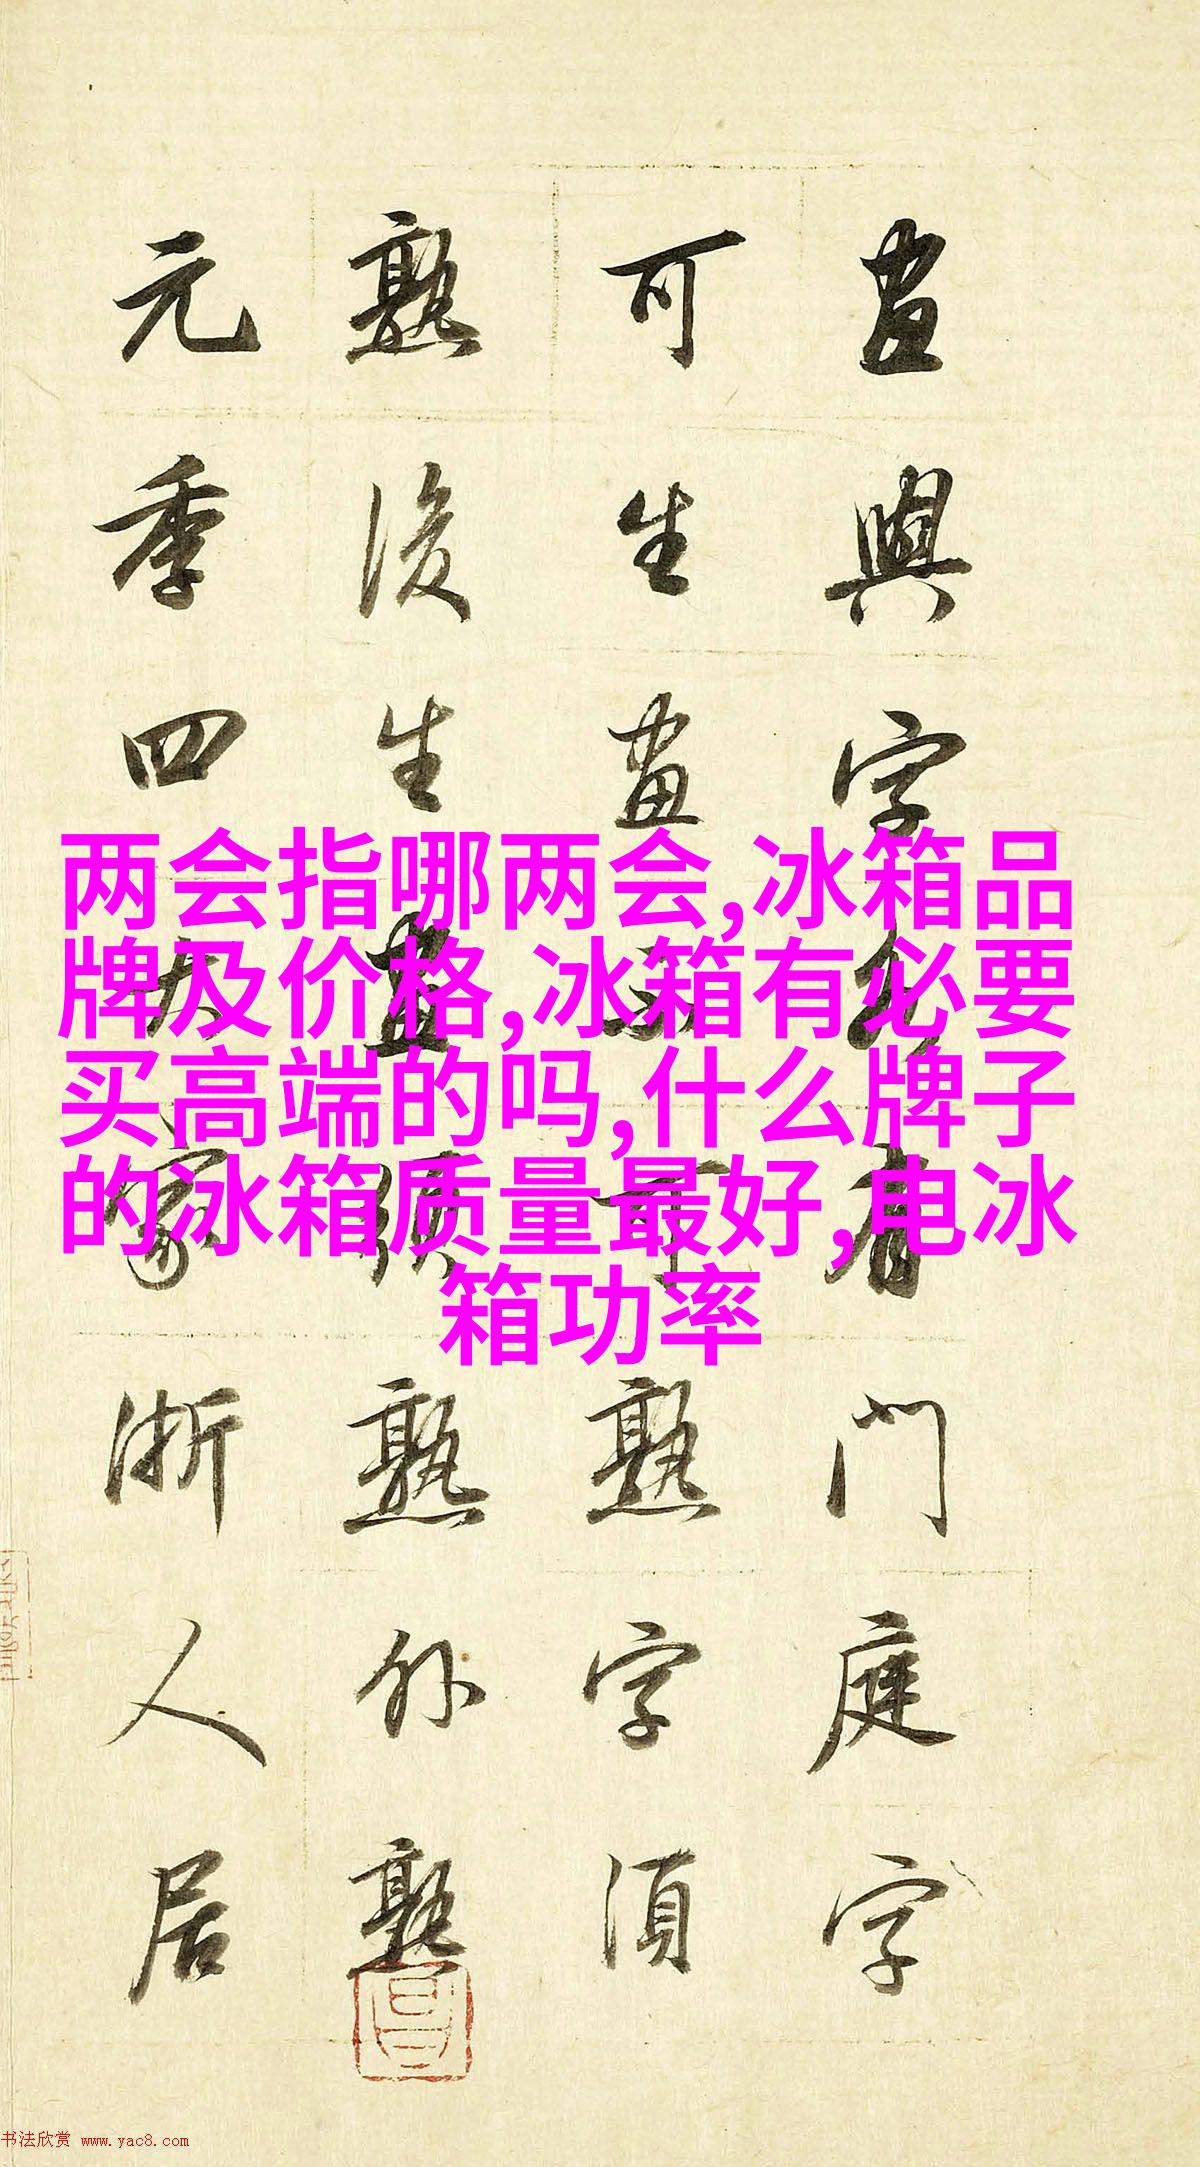 畫與字各有門庭字
可生畫不可熟字須
熟後生畫須熟外熟
元季四大家浙人居
两会指哪两会,冰箱品
牌及价格,冰箱有必要
买高端的吗,什么牌子
的冰箱质量最好,电冰
箱功率
书法欣赏 www.yac8.com